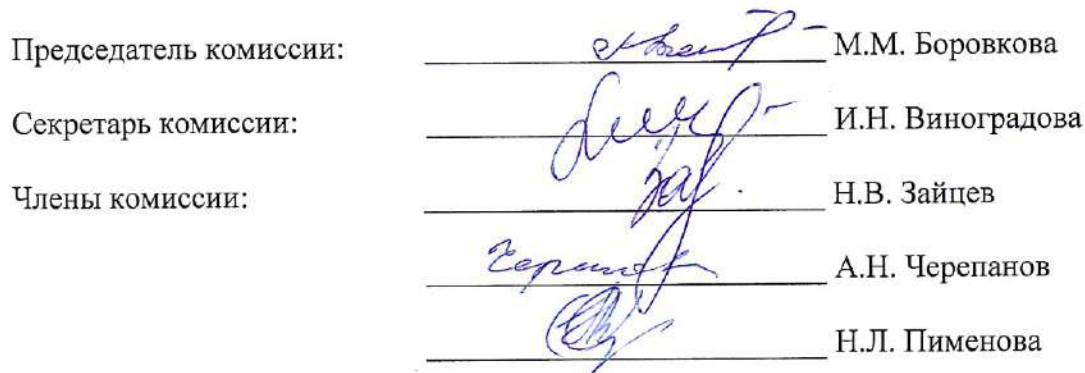 Председатель комиссии: М.М. Боровкова
Секретарь комиссии: И.Н. Виноградова
Члены комиссии: Н.В. Зайцев
А.Н. Черепанов
Н.Л. Пименова